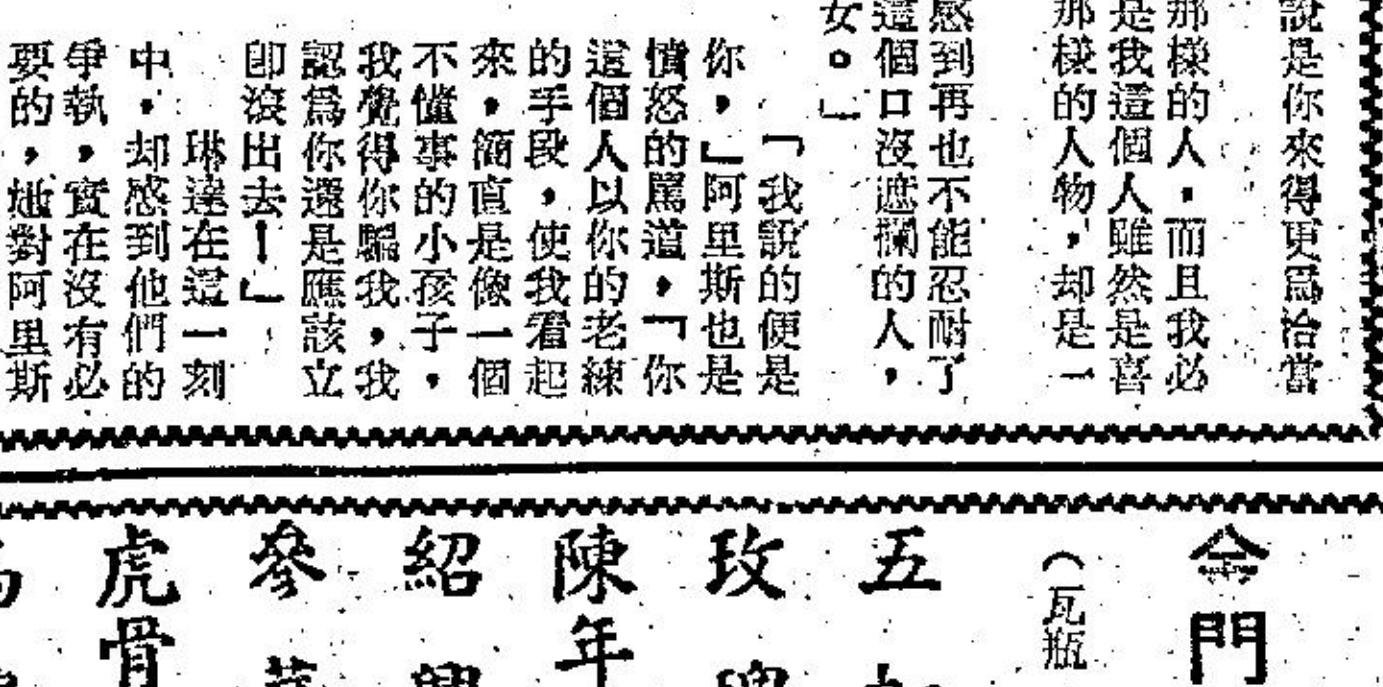 說是你來得更爲洽當
那樣的人，而且我必
是我這個人雖然是喜
那樣的人物，却是一
感到再也不能忍耐了
這個口沒遮攔的人，
女。」
「我說的便是
你，」阿里斯也是
憤怒的罵道，「你
這個人以你的老練
的手段，使我看起
來，簡直是像一個
不懂事的小孩子，
我覺得你騙我，我
認爲你還是應該立
卽滾出去！」
琳達在這一刻
中，却感到他們的
爭執，實在沒有必
要的，她對阿里斯
門
（瓦瓶
五
玫
陳年
紹
參
虎骨